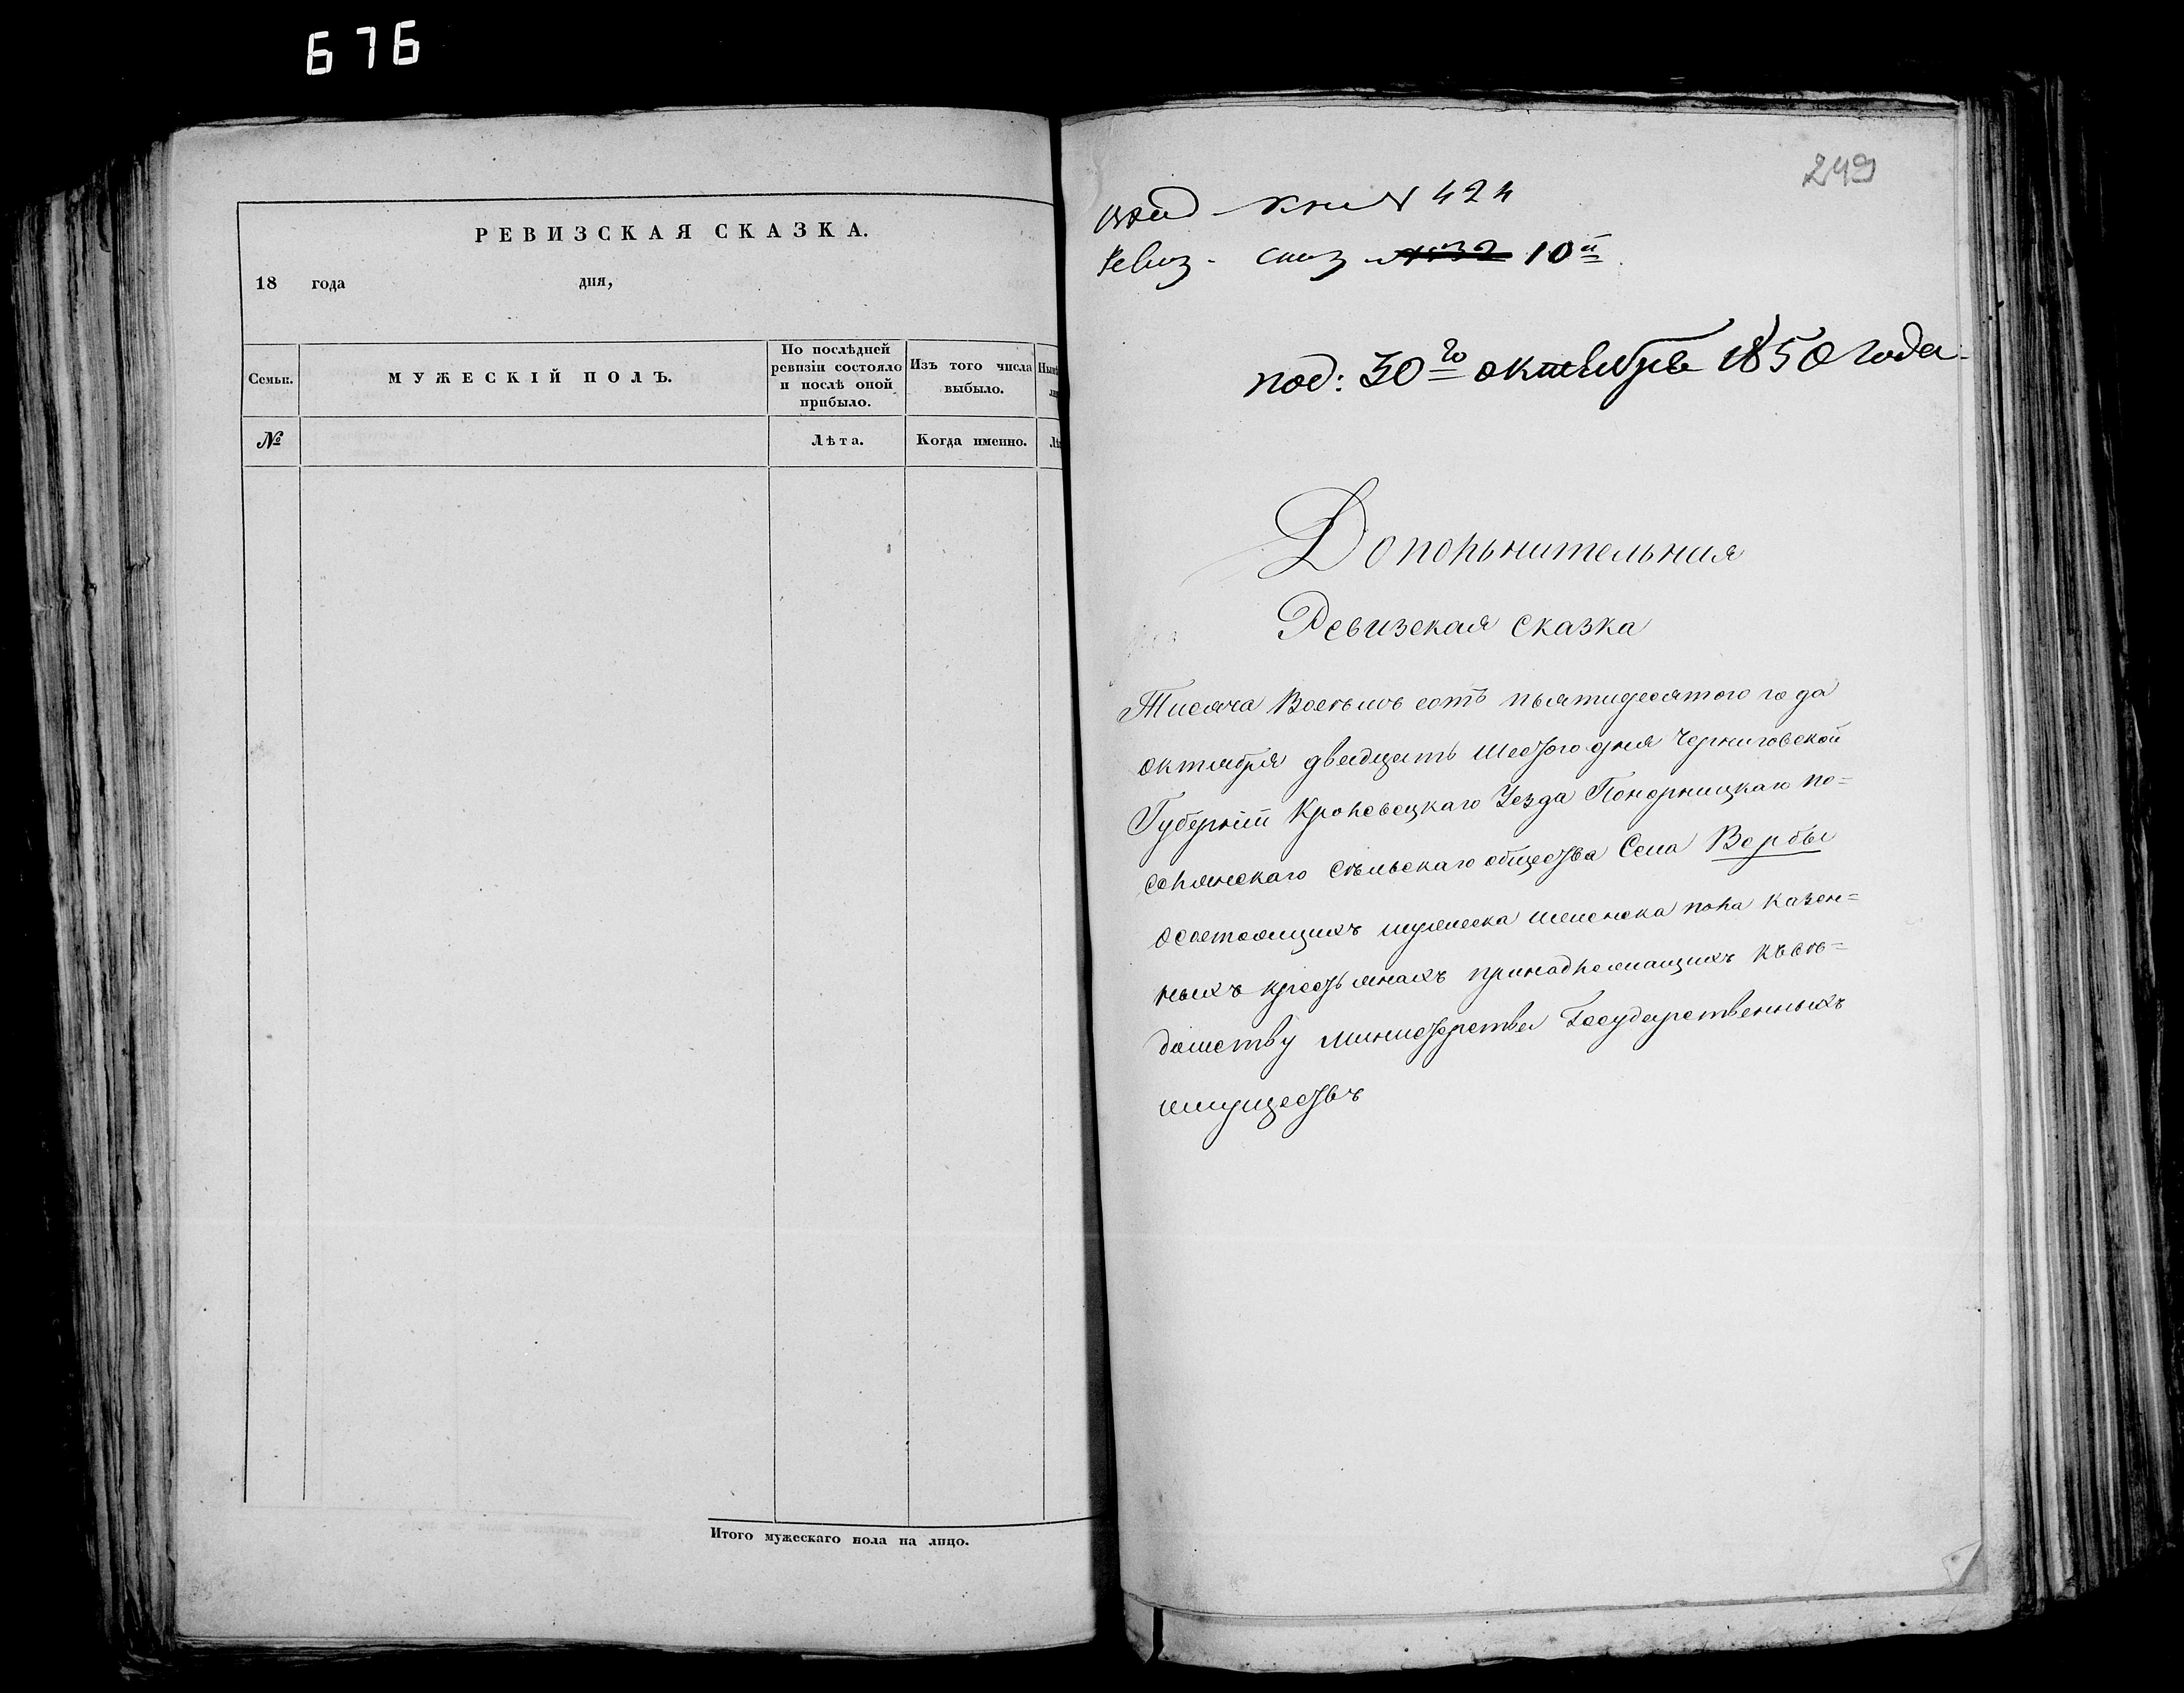 676
РЕВИЗСКАЯ СКАЗКА.
18 года дня,
Семьи.
МУЖЕСКІЙ ПОЛЪ.
По послѣдней
ревизіи состояло
и послѣ оной
прибыло.
Изъ того числа
выбыло.
№
Лѣта.
Когда именно.
Итого мужескаго пола на лицо.
249
вход кни № 424
Ревиз. сказ №32 10й
под: 30го октября 1850 года
Дополнительная
Ревизская сказка
Тисяча Восемь сотъ пьятидесятого года
октября двадцать шестого дня Черниговской
Губерніи Кролевецкаго Уезда Понорницкаго по=
селянскаго сѣльскаго общества Села Вербы
осостоящихъ мужеска женска пола казен=
ныхъ крестьянахъ принадлежащихъ къ вѣ=
домству Министерства Государственныхъ
имуществъ